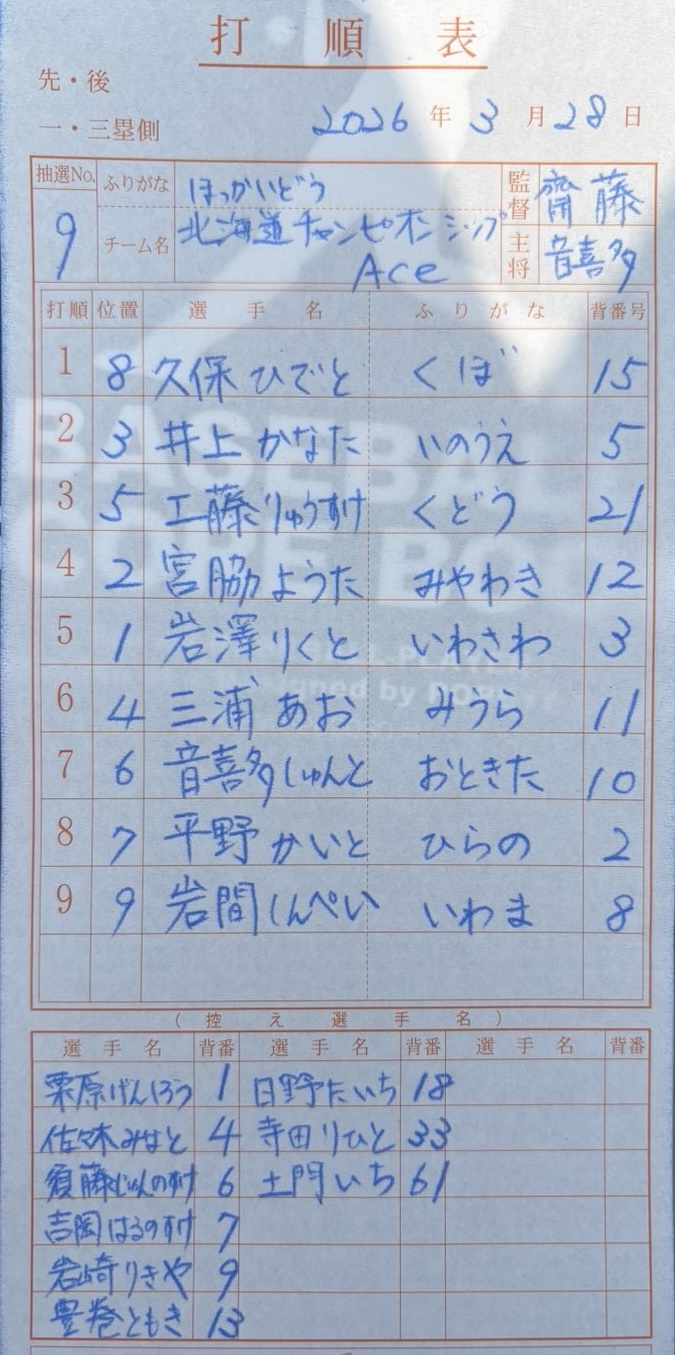 打順表
先・後
一・三塁側
2026年3月28日
抽選No. 9
ふりがな ほっかいどう
チーム名 北海道チャンピオンシップ
Ace
監督 齋藤
主将 音喜多
打順 位置 選手名 ふりがな 背番号
1 8 久保 ひでと くぼ 15
2 3 井上 かなた いのうえ 5
3 5 工藤 りゅうすけ くどう 21
4 2 宮脇 ようた みやわき 12
5 1 岩澤 りくと いわさわ 3
6 4 三浦 あお みうら 11
7 6 音喜多 しゅんと おときた 10
8 7 平野 かいと ひらの 2
9 9 岩間 しんぺい いわま 8
(控え選手名)
選手名 背番 選手名 背番 選手名 背番
栗原げんしろう 1 日野たいち 18
佐々木みなと 4 寺田りひと 33
須藤じゅんのすけ 6 土門いち 61
吉岡はるのすけ 7
岩崎りきや 9
豊巻ともき 13